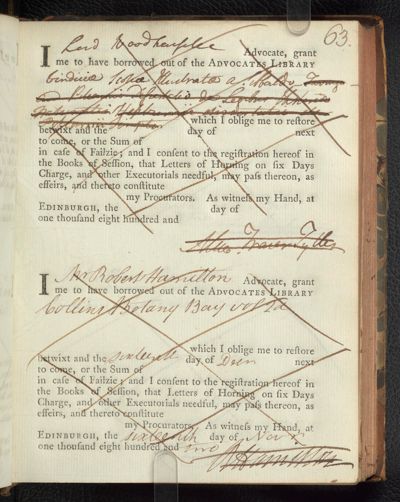 63.
I Lord Woodhouslee Advocate, grant
me to have borrowed out of the ADVOCATES LIBRARY
Scotia Illustrata
which I oblige me to restore
betwixt and the day of next
to come, or the Sum of
in case of Failzie; and I consent to the registration hereof in
the Books of Session, that Letters of Horning on six Days
Charge, and other Executorials needful, may pass thereon, as
effeirs, and thereto constitute
my Procurators. As witness my Hand, at
EDINBURGH, the day of
one thousand eight hundred and
Alex Fraser Tytler
I Mr Robert Hamilton Advocate, grant
me to have borrowed out of the ADVOCATES LIBRARY
Collins Botany Bay vol 2d
which I oblige me to restore
betwixt and the sixteenth day of Decr next
to come, or the Sum of
in case of Failzie; and I consent to the registration hereof in
the Books of Session, that Letters of Horning on six Days
Charge, and other Executorials needful, may pass thereon, as
effeirs, and thereto constitute
my Procurators. As witness my Hand, at
EDINBURGH, the sixteenth day of Novr
one thousand eight hundred and two
R Hamilton